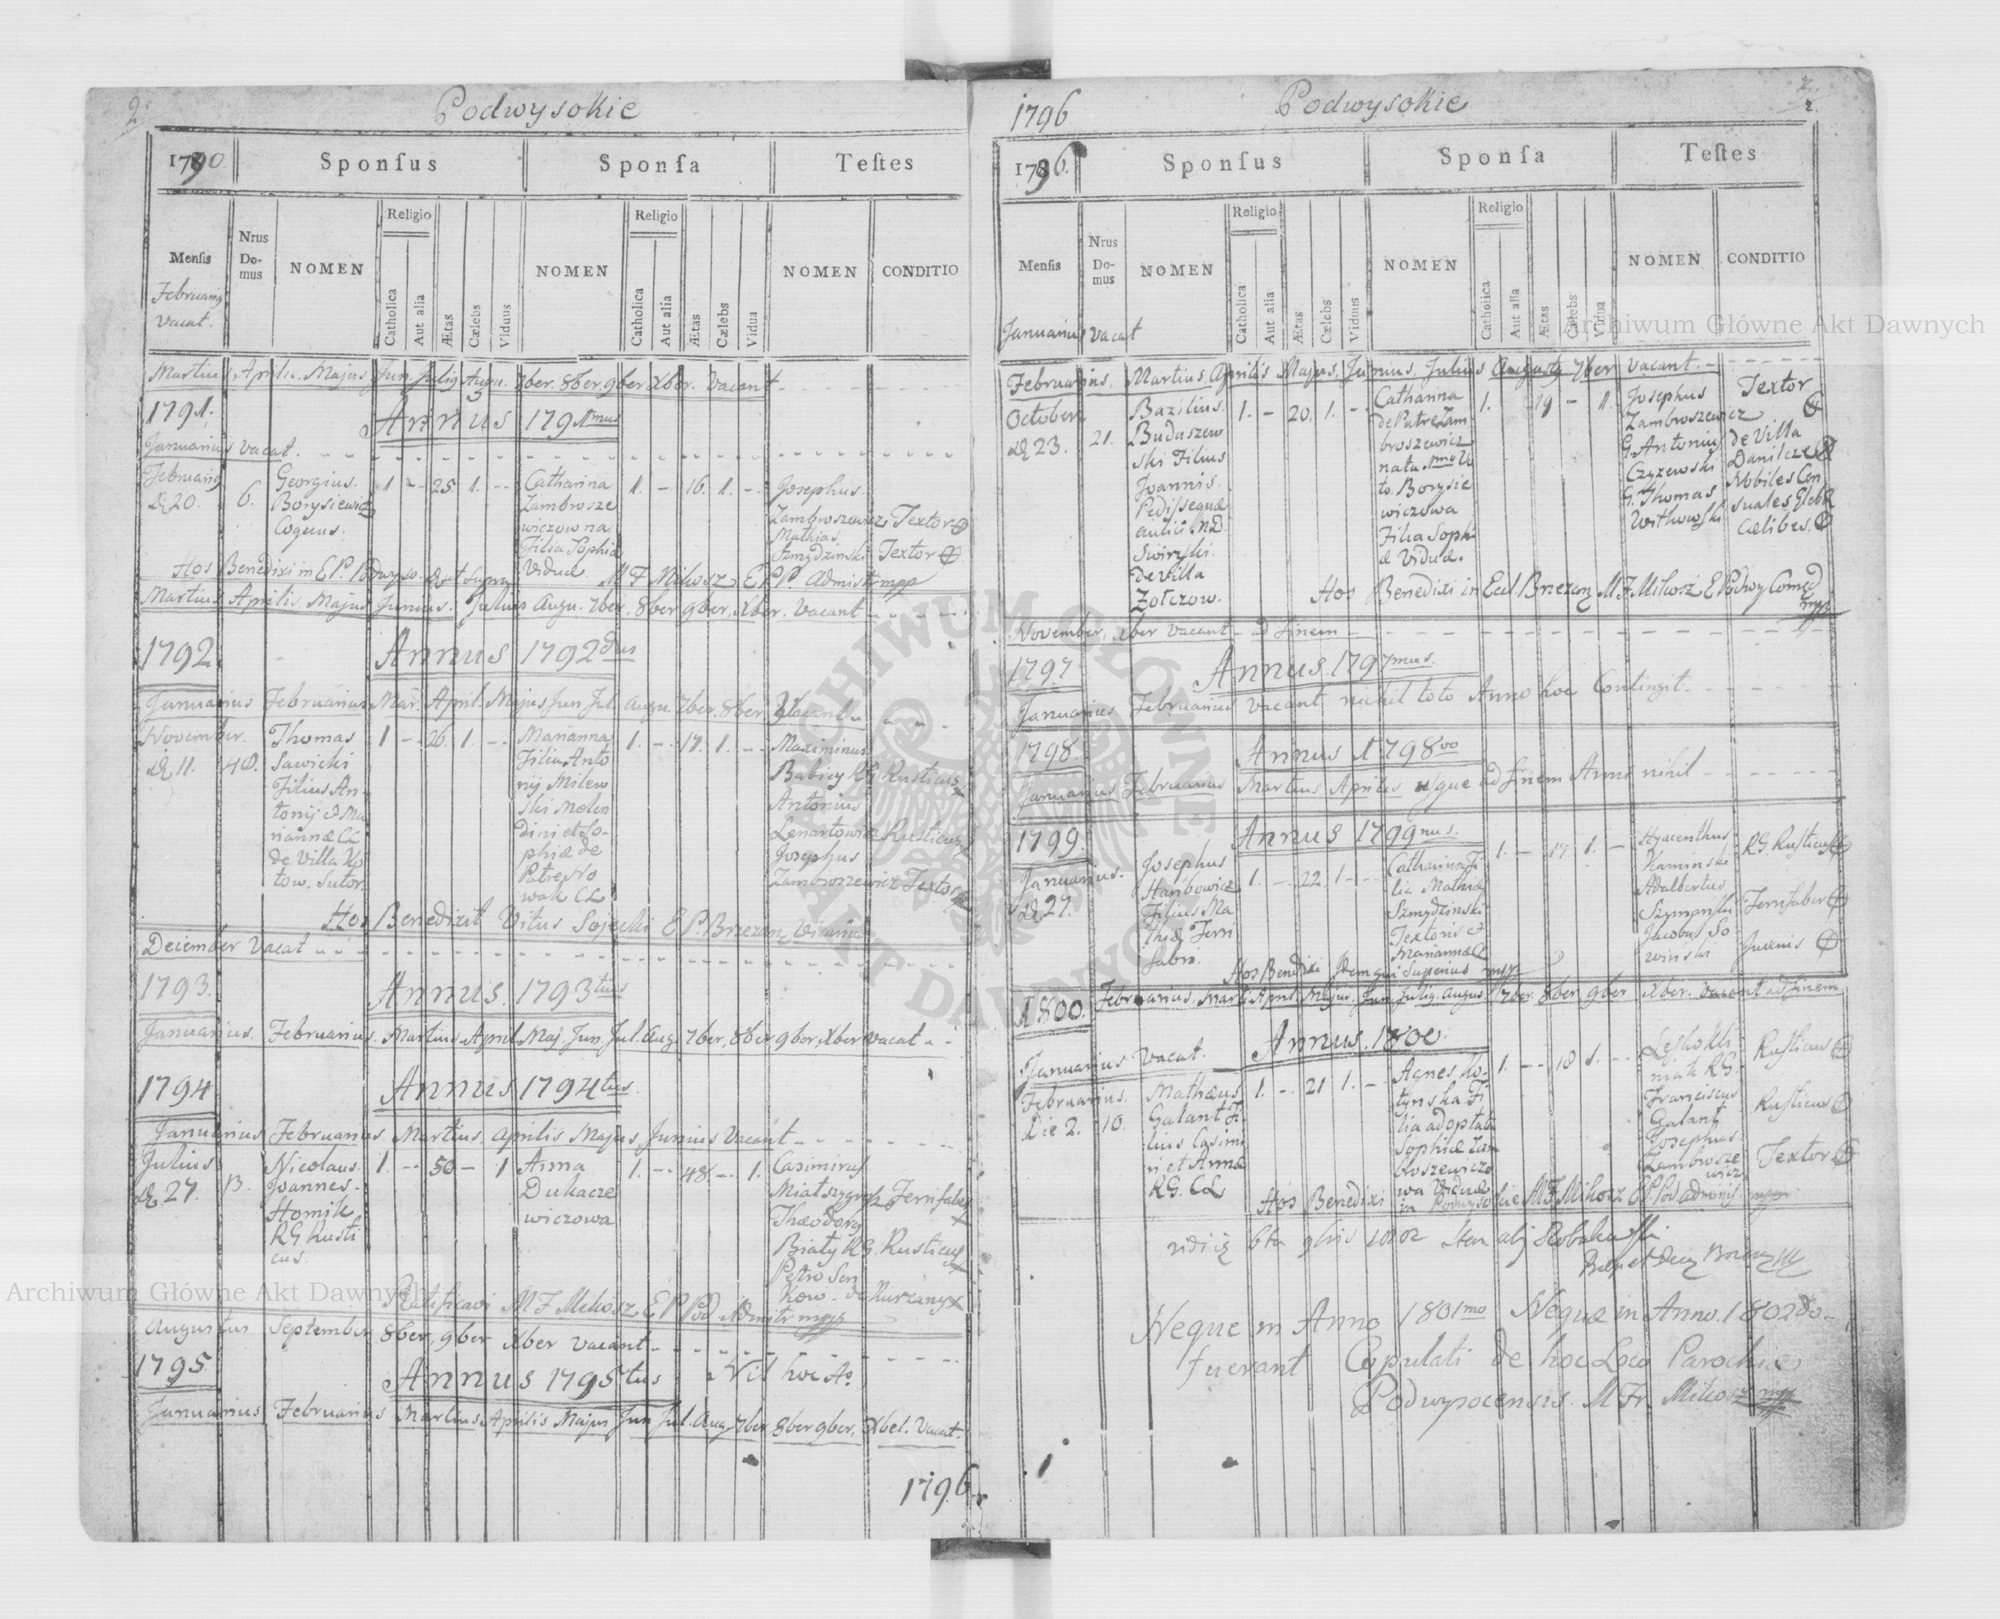 2.
Podwysokie
1790.
Sponsus
Sponsa
Testes
Mensis
Nrus Domus
NOMEN
Religio
Catholica
Aut alia
Ætas
Cælebs
Viduus
NOMEN
Religio
Catholica
Aut alia
Ætas
Cælebs
Vidua
NOMEN
CONDITIO
Februariȝ
vacat.
Martius Aprilis. Majus Jun Julig Augu. 7ber. 8ber. 9ber. Xber. Vacant
1791. Annus 1791mus
Januarius vacat.
Februariȝ Georgius. 1 - 25. 1. - Catharina 1. - 16. 1. - Josephus
20. 6. Borysiewicz Zambrosze Zambroszewicz Textor
Coquus. wiczowna Mathias
Filia Sophiæ Szmydzinski Textor
Viduæ.
Hos Benedixi in E.P. Podwyso. M F Mikosz E P P. Admistr mpp
Martius Aprilis Majus Junius. Julius Augu. 7ber. 8ber 9ber, Xber. Vacant
1792 Annus 1792dus
Januarius Februarius Mar. April. Majus Jun Jul. Augu. 7ber. 8ber. Vacant
November. Thomas 1 - 26. 1. - Marianna 1. - 17. 1. - Maximinus
11. 48. Sawicki Filia Anto Babicy RG Rusticus
Filius An nij Milew Antonius
tonij et Ma ski Molen Lenartowicz Rusticus
riannæ CL dini et So Josephus
de Villa Ko phiæ de Zambroszewicz Textor
tow. Sutor. Patre No
wak CL
Hos Benedixit Vitus Sojecki E P. Brzezan. Vicarius
December Vacat
1793. Annus. 1793tius
Januarius. Februarius. Martius April. Maj. Jun. Jul. Aug 7ber. 8ber 9ber, Xber vacat
1794 Annus 1794tus
Januarius Februarius Martius Aprilis Majus Junius Vacant
Julius Nicolaus 1. - 50 - 1 Anna 1. - 48. - 1. Casimirus
27. 13. Joannes Dukacze Ferrifaber
Homik wiczowa Theodorg
RG Rusti Biały RG. Rusticus
cus. Petro Sen
Kow. de Kurzany
Ratificavi M F Mikosz E P Pod Admistr mpp
Augustus September 8ber, 9ber Xber vacant
1795 Annus 1795tus Nil hoc Ao
Januarius Februarius Martius Aprilis Majus Jun Jul. Aug 7ber 8ber 9ber. Xber. Vacat.
1796
1796 Podwysokie
1796.
Sponsus
Sponsa
Testes
Mensis
Nrus Domus
NOMEN
Religio
Catholica
Aut alia
Ætas
Cælebs
Viduus
NOMEN
Religio
Catholica
Aut alia
Ætas
Cælebs
Vidua
NOMEN
CONDITIO
Januarius vacat
Februarius. Martius, Aprilis Majus, Junius, Julius Augusty 7ber vacant.
October Bazilius. 1. - 20. 1. - Catharina 1. 19 - 1. Josephus Textor
23. 21. Budaszew de Patre Zam Zambroszewicz
ski Filius broszewicz G. Antonius de Villa
Joannis. nata Czyzewski Danilcze
Pedissequæ to. Borysie G. Thomas Nobiles Cen
aulici wiczowa Withowski suales Glebæ
Swirski. Filia Sophi Cælibes.
De Villa æ Viduæ.
Zołczow.
Hos Benedixi in Eccl. Brzezan M F Mikosz E Podwy
November, Xber vacant ad finem
1797 Annus. 1797mus.
Januarius. Februarius vacant, nichil toto Anno hoc Contingit
1798. Annus 1798vo
Januarius Februarius Martius Aprilis usque ad finem Anni nihil
1799. Annus 1799nus.
Januarius. Josephus 1. - 22. 1. - Catharina Fi 1. - 17 1. - Hyacenthus RG. Rusticus
27. Hanbowicz lia Mathiæ Kaminski
Filius Ma Szmydzinski Adalbertus
thiæ Ferri Textoris et Szymanski Ferrifaber
fabri. Mariannæ Jacobus So
winski Juvenis
Hos Benedixi Idem qui Superius mpp
1800. Februarius. Marti April. Majus. Jun. Julig. Augus 7ber. 8ber 9ber Xber. Vacant ad finem
Januarius Vacat. Annus. 1800.
Februarius. Mathæus 1. - 21 1. - Agnes Ko 1. - 18 1. - Rusticus
Die 2. 10. Galant Fi tynska Fi mak RG.
lius Casimi lia adoptata Franciscus Rusticus
ri et Annæ Sophiæ Zam Galant
RG. CL broszewiczo Josephus
wa Viduæ Zambrosze Textor
wicz
Hos Benedixi in Podwysokie M F Mikosz E P Pod admnis. mpp
Neque in Anno 1801mo Neque in Anno. 1802do
fuerant Copulati de hoc Loco Parochiæ
Podwysocensis. M Fr. Mikosz mpp
Archiwum Główne Akt Dawnych
Archiwum Główne Akt Dawnych
ARCHIWUM GŁÓWNE AKT DAWNYCH